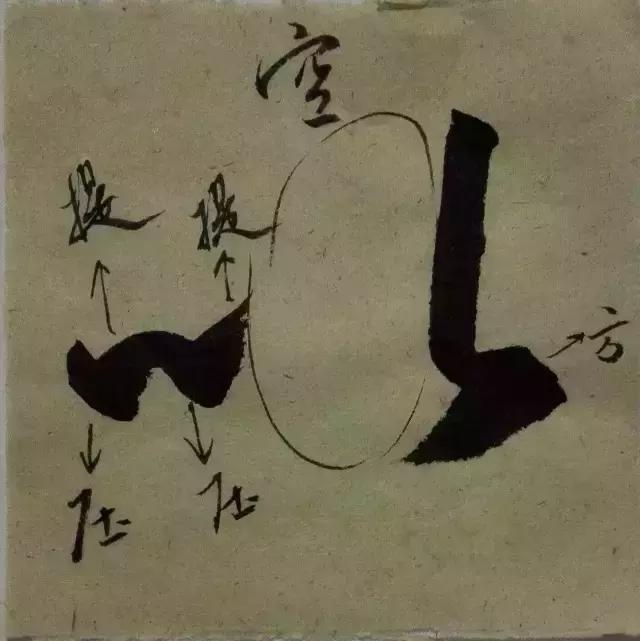 空
提 提
方
压 压